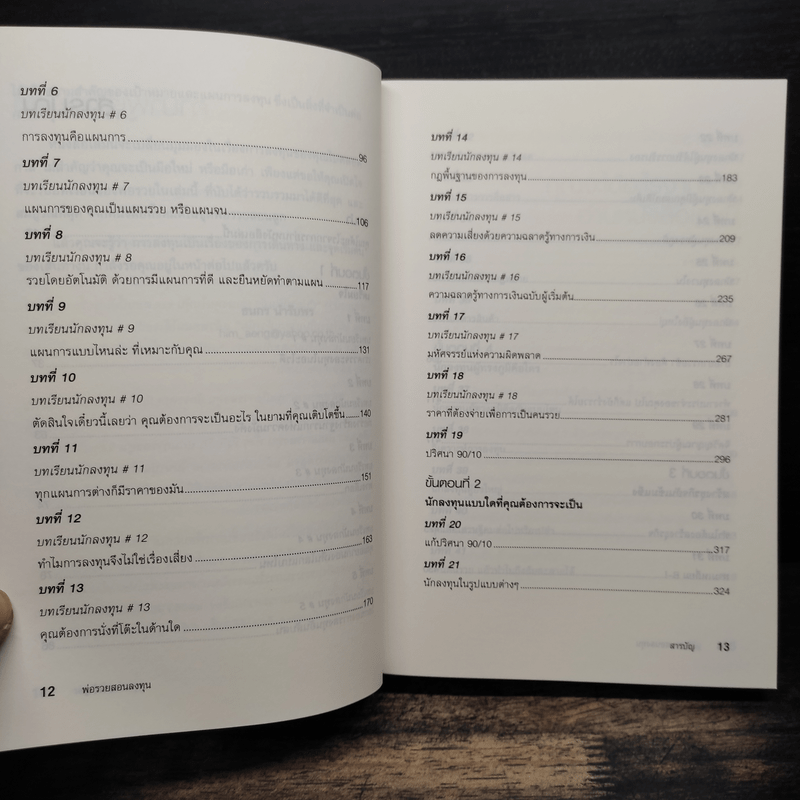 บทที่ 6
บทเรียนนักลงทุน # 6
การลงทุนคือแผนการ 96
บทที่ 7
บทเรียนนักลงทุน # 7
แผนการของคุณเป็นแผนรวย หรือแผนจน 106
บทที่ 8
บทเรียนนักลงทุน # 8
รวยโดยอัตโนมัติ ด้วยการมีแผนการที่ดี และยืนหยัดทำตามแผน 117
บทที่ 9
บทเรียนนักลงทุน # 9
แผนการแบบไหนล่ะ ที่เหมาะกับคุณ 131
บทที่ 10
บทเรียนนักลงทุน # 10
ตัดสินใจเดี๋ยวนี้เลยว่า คุณต้องการจะเป็นอะไร ในยามที่คุณเติบโตขึ้น 140
บทที่ 11
บทเรียนนักลงทุน # 11
ทุกแผนการต่างก็มีราคาของมัน 151
บทที่ 12
บทเรียนนักลงทุน # 12
ทำไมการลงทุนจึงไม่ใช่เรื่องเสี่ยง 163
บทที่ 13
บทเรียนนักลงทุน # 13
คุณต้องการนั่งที่โต๊ะในด้านใด 170
12 พ่อรวยสอนลงทุน
บทที่ 14
บทเรียนนักลงทุน # 14
กฎพื้นฐานของการลงทุน 183
บทที่ 15
บทเรียนนักลงทุน # 15
ลดความเสี่ยงด้วยความฉลาดรู้ทางการเงิน 209
บทที่ 16
บทเรียนนักลงทุน # 16
ความฉลาดรู้ทางการเงินฉบับผู้เริ่มต้น 235
บทที่ 17
บทเรียนนักลงทุน # 17
มหัศจรรย์แห่งความผิดพลาด 267
บทที่ 18
บทเรียนนักลงทุน # 18
ราคาที่ต้องจ่ายเพื่อการเป็นคนรวย 281
บทที่ 19
ปริศนา 90/10 296
ขั้นตอนที่ 2
นักลงทุนแบบใดที่คุณต้องการจะเป็น
บทที่ 20
แก้ปริศนา 90/10 317
บทที่ 21
นักลงทุนในรูปแบบต่างๆ 324
สารบัญ 13